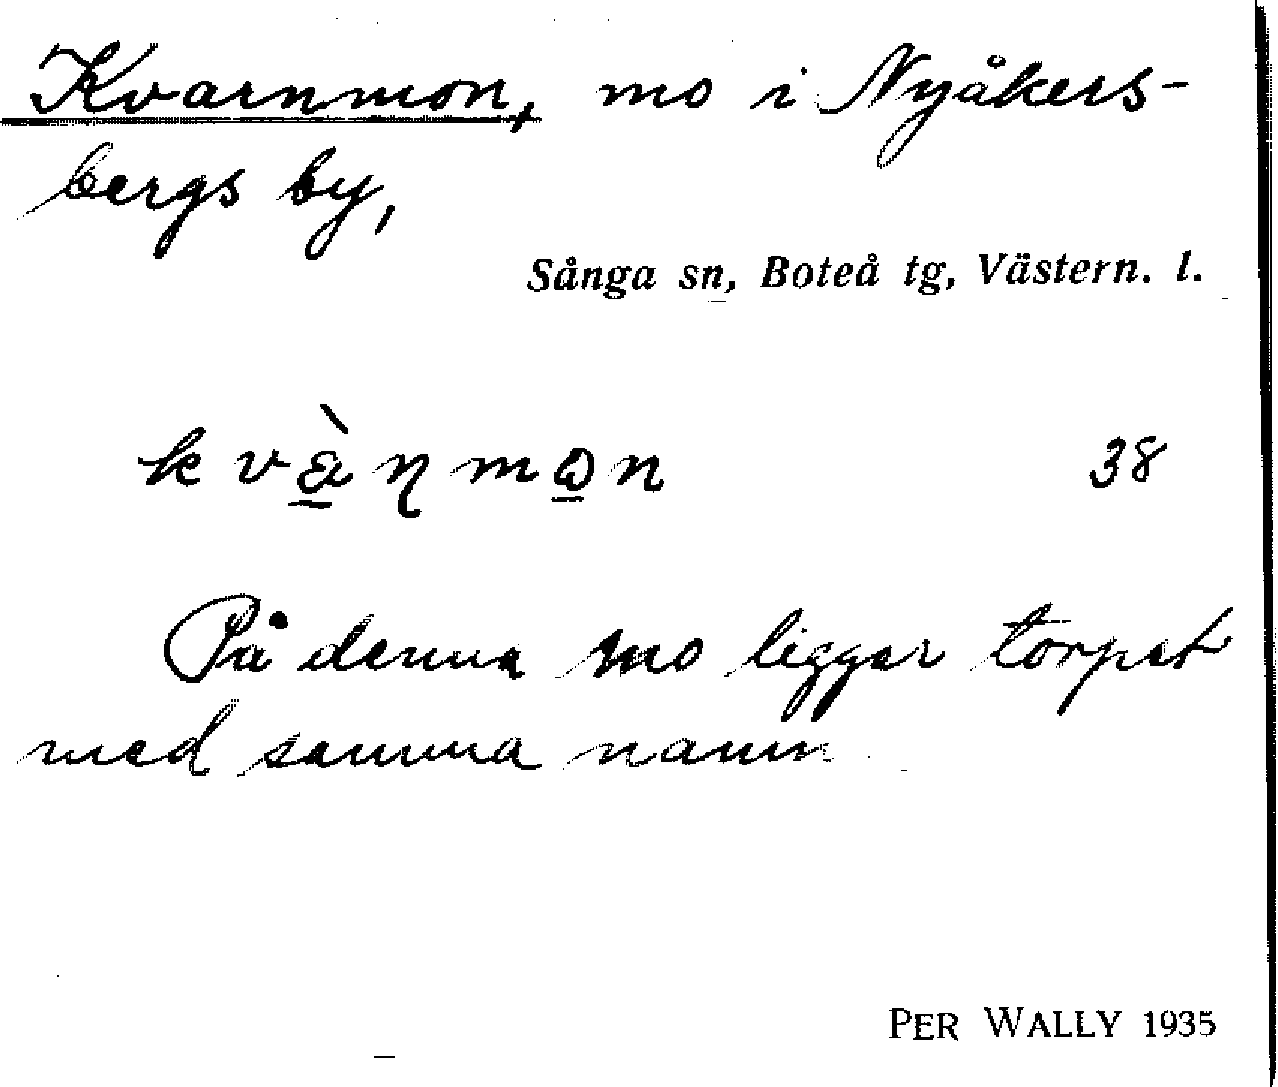 Kvarnmon, mo i Nyåkers-
bergs by,
Sånga sn, Boteå tg, Västern. l.
38
På denna mo ligger torpet
med samma namn
PER WALLY 1935